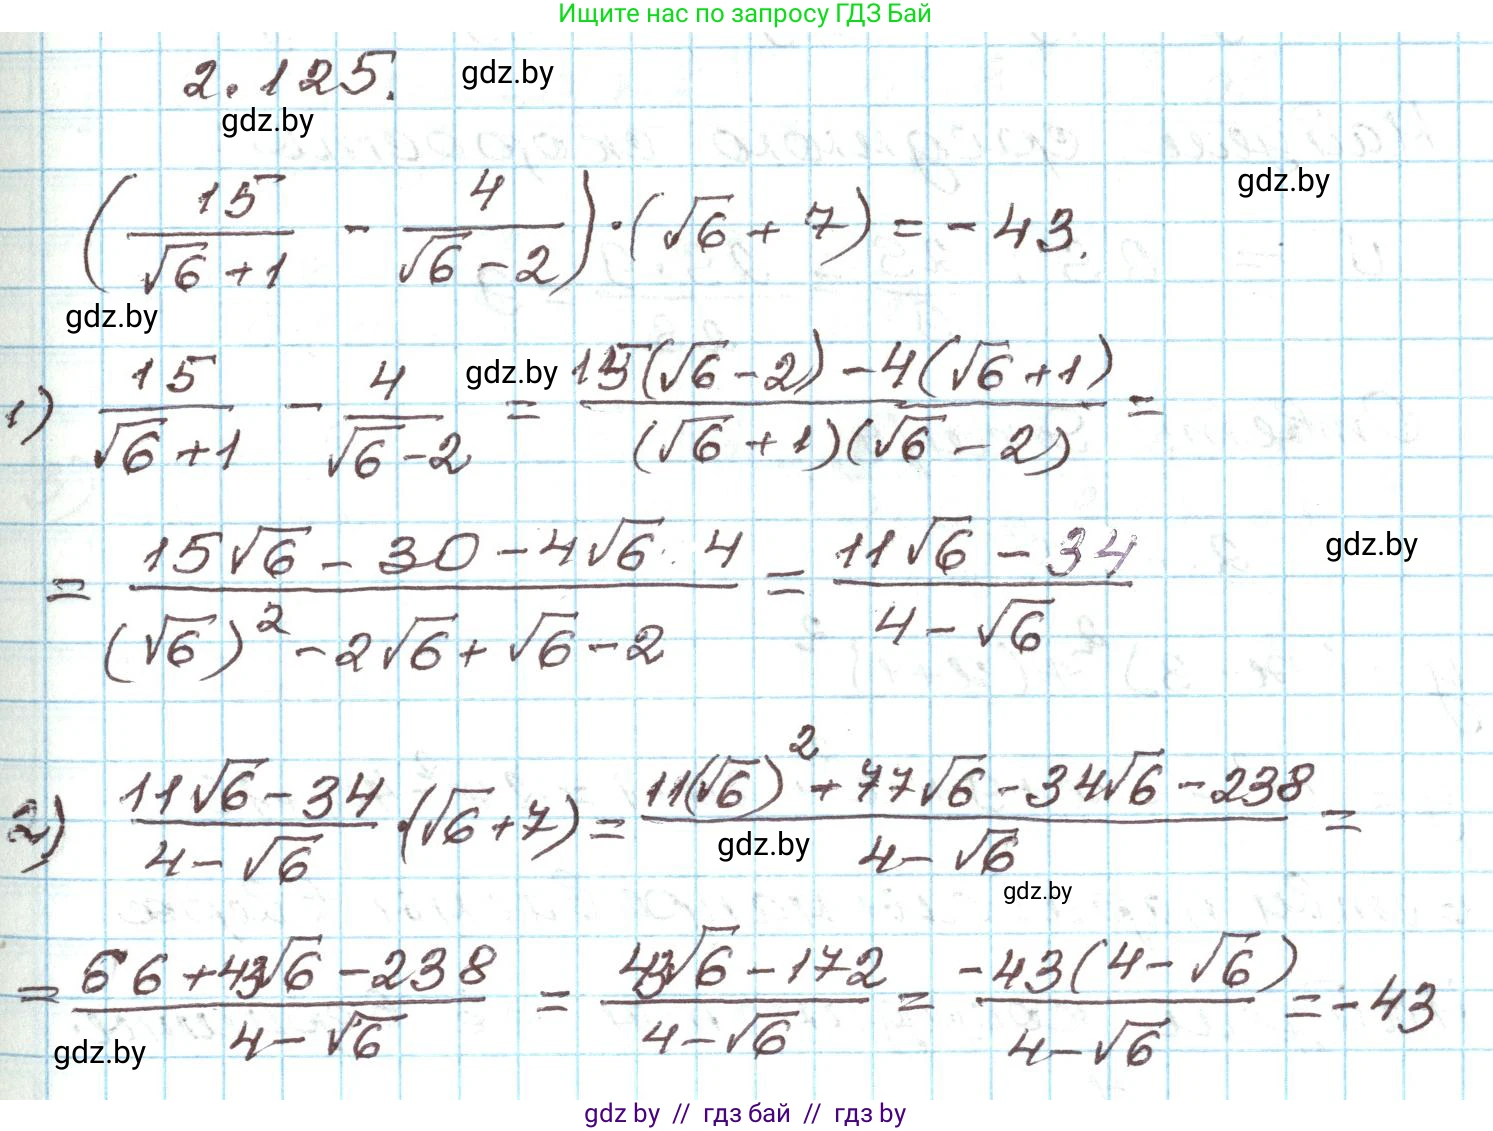 Ищите нас по запросу ГДЗ Бай
2.125. gdz.by
gdz.by
(15/(√6+1) - 4/(√6-2))·(√6+7) = -43. gdz.by
gdz.by
1) 15/(√6+1) - 4/(√6-2) gdz.by = (15(√6-2)-4(√6+1))/((√6+1)(√6-2)) =
= (15√6-30-4√6 4)/((√6)²-2√6+√6-2) = (11√6-34)/(4-√6) gdz.by
2) (11√6-34)/(4-√6)·(√6+7) = (11(√6)²+77√6-34√6-238)/(4-√6) =
gdz.by
gdz.by
= (66+43√6-238)/(4-√6) = (43√6-172)/(4-√6) = (-43(4-√6))/(4-√6) = -43
gdz.by
gdz by // гдз бай // гдз by